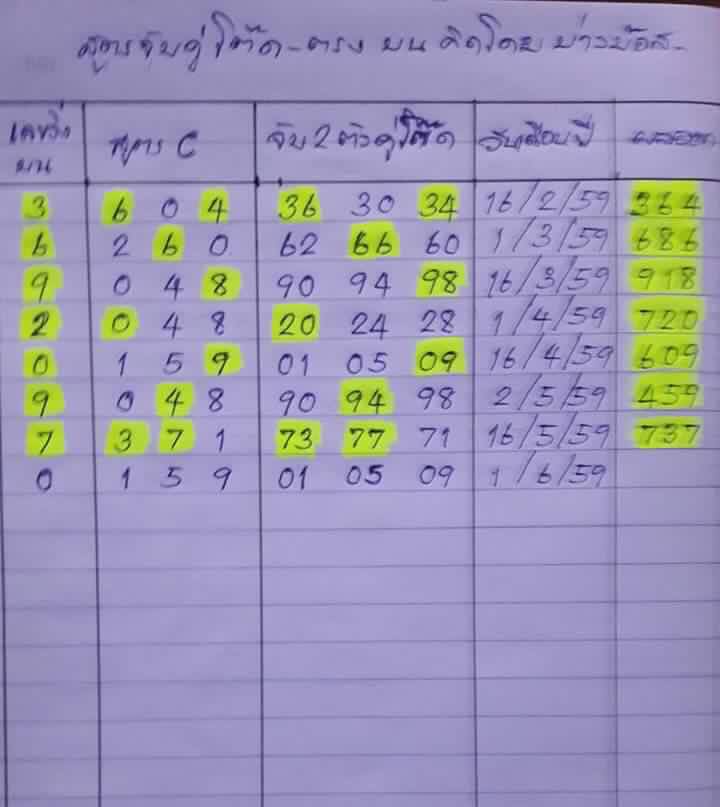 สูตรจับคู่ โต๊ด-ตรง บน คิดโดย บ่าวบ๊อส-
เลขวิ่งบน สูตร C จับ 2 ตัวคู่โต๊ด วันเดือนปี
3 6 0 4 36 30 34 16/2/59 364
6 2 6 0 62 66 60 1/3/59 686
9 0 4 8 90 94 98 16/3/59 918
2 0 4 8 20 24 28 1/4/59 720
0 1 5 9 01 05 09 16/4/59 609
9 0 4 8 90 94 98 2/5/59 459
7 3 7 1 73 77 71 16/5/59 737
0 1 5 9 01 05 09 1/6/59